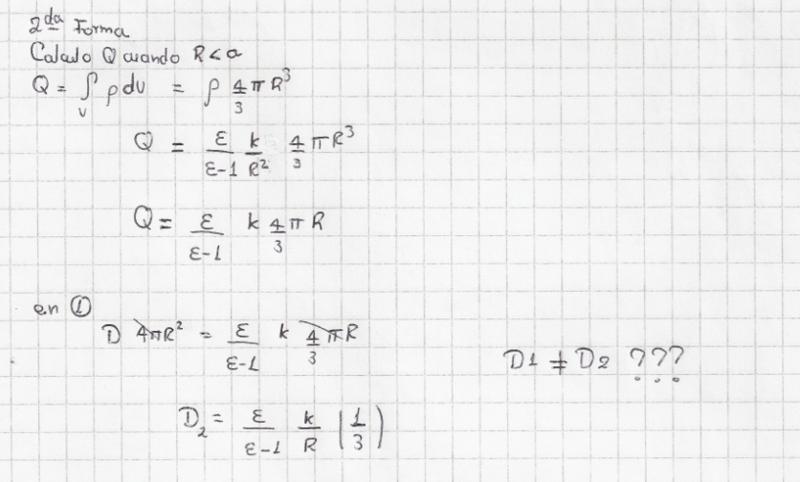 2da Forma
Calculo Q cuando R<a
Q = ∫v ρ dv = ρ 4/3 π R³
Q = ε/(ε-1) k/R² 4/3 π R³
Q = ε/(ε-1) k 4/3 π R
en ①
D 4πR² = ε/(ε-1) k 4/3 π R
D1 ≠ D2 ???
D₂ = ε/(ε-1) k/R (1/3)